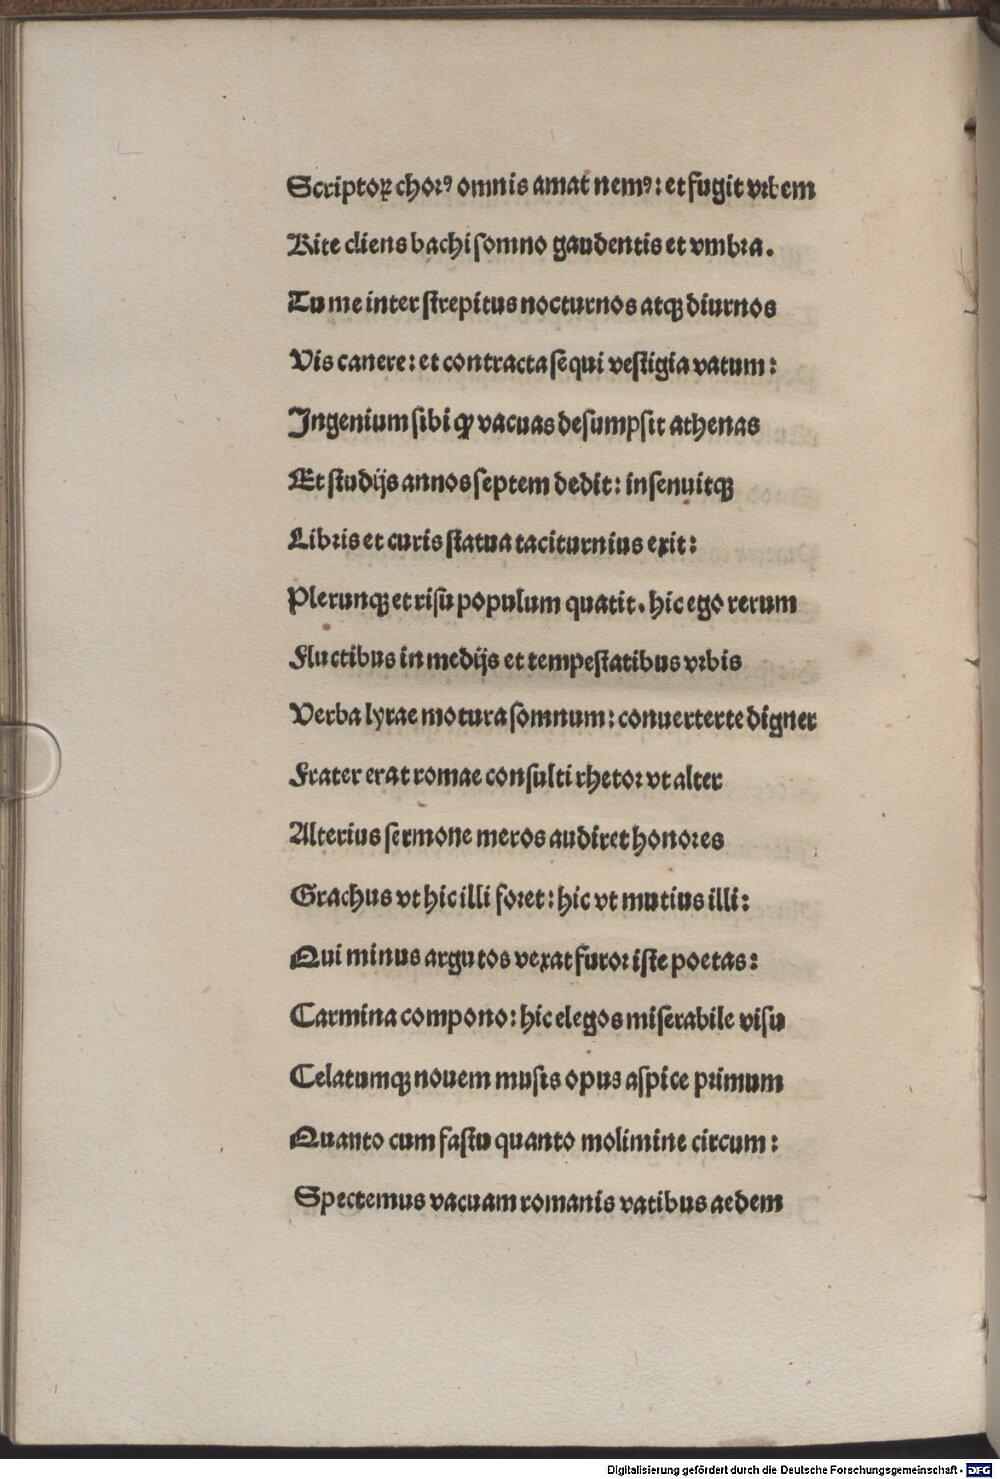 Scriptoꝝ chorꝰ omnis amat nemꝰ: et fugit vrbem
Rite cliens bachi somno gaudentis et vmbra.
Tu me inter strepitus nocturnos atqꝫ diurnos
Vis canere: et contracta sequi vestigia vatum:
Ingenium sibi qꝫ vacuas desumpsit athenas
Et studijs annos septem dedit: insenuitqꝫ
Libris et curis statua taciturnius exit:
Plerunqꝫ et risu populum quatit. hic ego rerum
Fluctibus in medijs et tempestatibus vrbis
Verba lyrae motura somnum: conuerterte digner
Frater erat romae consulti rhetor vt alter
Alterius sermone meros audiret honores
Grachus vt hic illi foret: hic vt mutius illi:
Qui minus argutos vexat furor iste poetas:
Carmina compono: hic elegos miserabile visu
Celatumqꝫ nouem musis opus aspice primum
Quanto cum fastu quanto molimine circum:
Spectemus vacuam romanis vatibus aedem
Digitalisierung gefördert durch die Deutsche Forschungsgemeinschaft - DFG